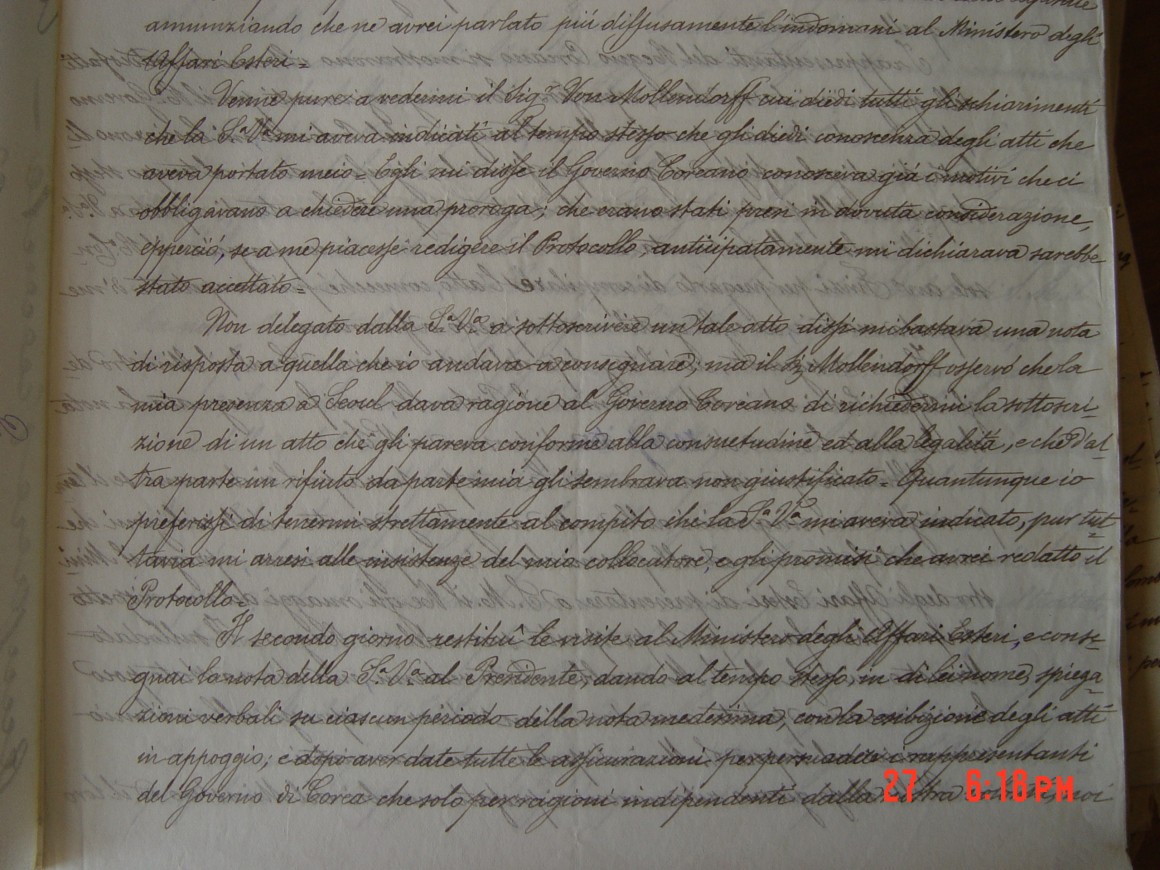 annunziando che ne avrei parlato più diffusamente l'indomani al Ministero degli
Affari Esteri =
Venne pure a vedermi il Sig.r Von Mollendorff cui diedi tutti gli schiarimenti
che la S.a V.a mi aveva indicati al tempo stesso che gli diedi conoscenza degli atti che
aveva portato meco = Egli mi disse il Governo Coreano conosceva già i motivi che ci
obbligavano a chiedere una proroga; che erano stati presi in dovuta considerazione,
epperciò, se a me piacesse redigere il Protocollo, anticipatamente mi dichiarava sarebbe
stato accettato =
Non delegato dalla S.a V.a a sottoscrivere un tale atto dissi mi bastava una nota
di risposta a quella che io andava a consegnare; ma il Sig.r Mollendorff osservò che la
mia presenza a Seoul dava ragione al Governo Coreano di richiedermi la sottoscri-
zione di un atto che gli pareva conforme alla consuetudine ed alla legalità, e che d'al-
tra parte un rifiuto da parte mia gli sembrava non giustificato = Quantunque io
preferissi di tenermi strettamente al compito che la S.a V.a mi aveva indicato, pur tut-
tavia mi arresi alle insistenze del mio collocatore, e gli promisi che avrei redatto il
Protocollo =
Il secondo giorno restituì le visite al Ministero degli Affari Esteri, e conse-
gnai la nota della S.a V.a al Presidente, dando al tempo stesso, in di lei nome, spiega-
zioni verbali su ciascun periodo della nota medesima, con la esibizione degli atti
in appoggio; e dopo aver date tutte le assicurazioni per persuadere i rappresentanti
del Governo di Corea che solo per ragioni indipendenti dalla nostra
27 6:18PM